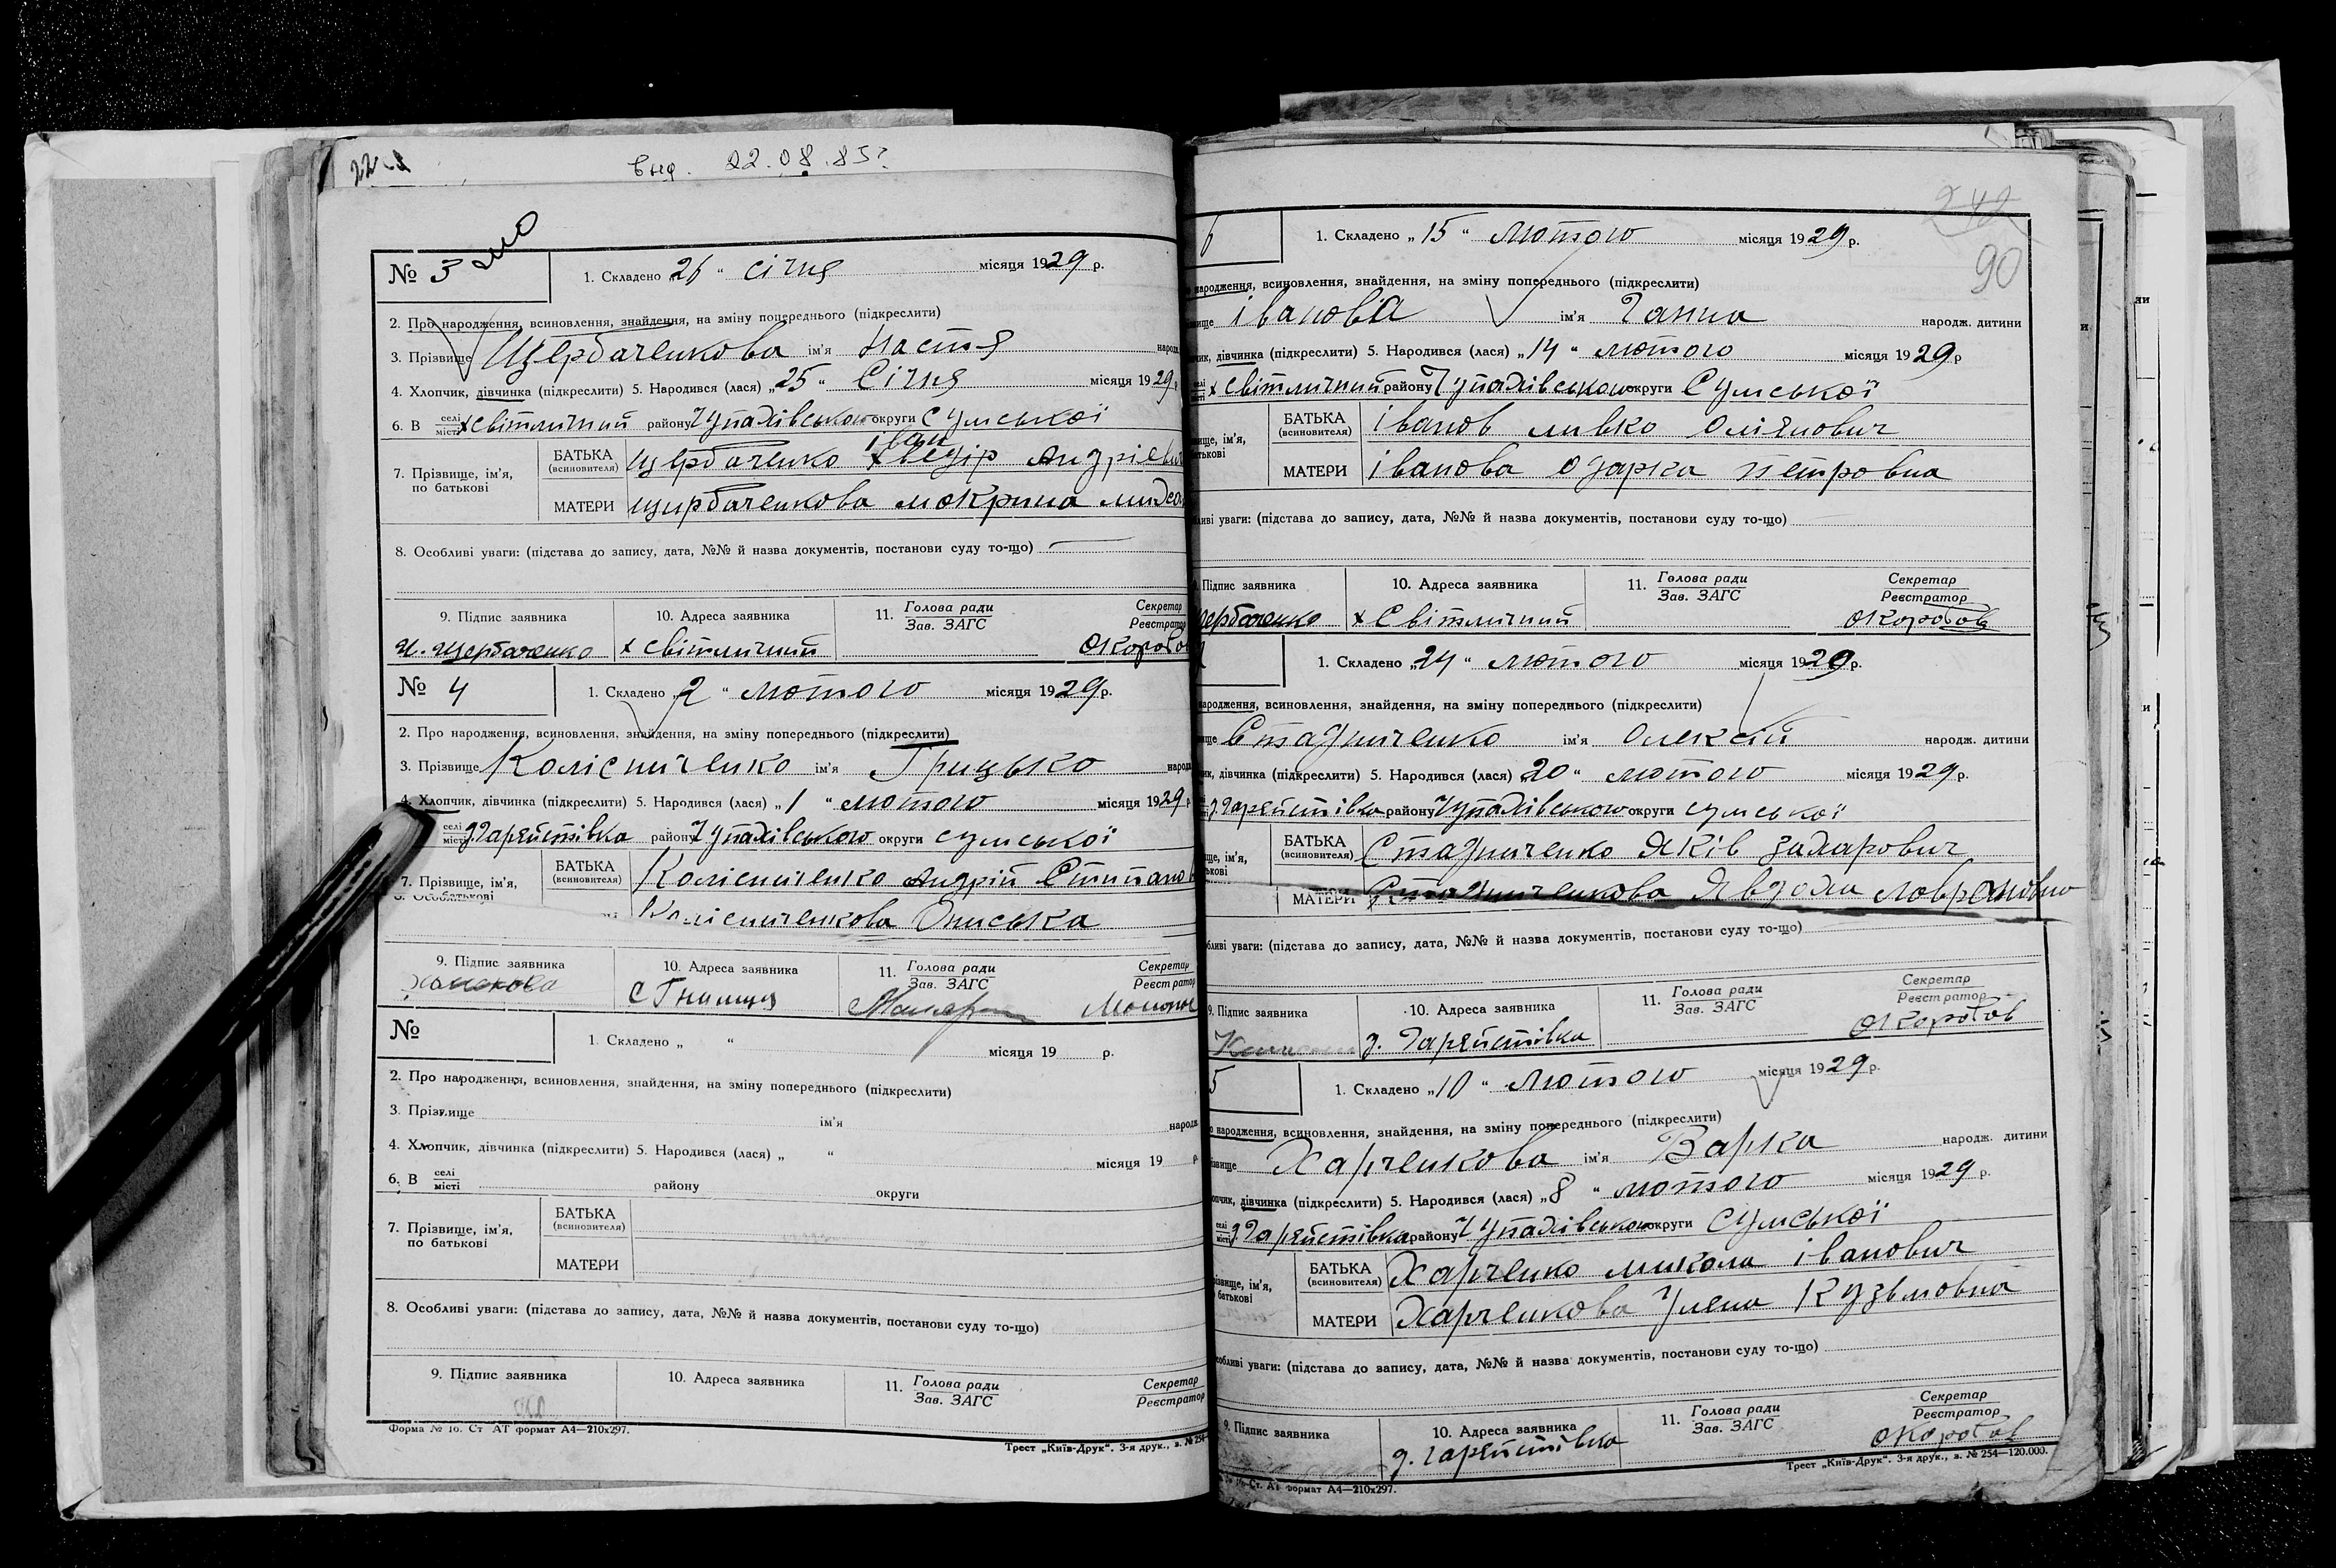 22
Вид. 22.08.85г
№ 3
1. Складено 26 " січня місяця 1929 р.
2. Про народження, всиновлення, знайдення, на зміну попереднього (підкреслити)
3. Прізвище Щербаченкова ім'я Настя народ
4. Хлопчик, дівчинка (підкреслити) 5. Народився (лася) „25 " Січня місяця 1929 р
6. В селі місті х Світличний району Чупахівського округи Сумської
7. Прізвище, ім'я, по батькові
БАТЬКА (всиновителя) Щербаченко Іван Андріеви
МАТЕРИ Щирбаченкова мокрина
8. Особливі уваги: (підстава до запису, дата, №№ й назва документів, постанови суду то-що)
9. Підпис заявника 10. Адреса заявника 11. Голова ради Зав. ЗАГС Секретар Реєстратор
И. Щербаченко х Світличний ОКоробо
№ 4
1. Складено „2 " лютого місяця 1929 р.
2. Про народження, всиновлення, знайдення, на зміну попереднього (підкреслити)
3. Прізвище Колісниченко ім'я Грицько народ
4. Хлопчик, дівчинка (підкреслити) 5. Народився (лася) „1 " лютого місяця 1929 р
селі місті району Чупахівського округи сумської
7. Прізвище, ім'я, по батькові
БАТЬКА (всиновителя) Колісниченко Андрій Стипано
Колісниченкова Ониська
9. Підпис заявника 10. Адреса заявника 11. Голова ради Зав. ЗАГС Секретар Реєстратор
с Гнилиця
№
1. Складено „ " місяця 19 р.
2. Про народження, всиновлення, знайдення, на зміну попереднього (підкреслити)
3. Прізвище ім'я народж
4. Хлопчик, дівчинка (підкреслити) 5. Народився (лася) „ " місяця 19 р
6. В селі місті району округи
7. Прізвище, ім'я, по батькові
БАТЬКА (всиновителя)
МАТЕРИ
8. Особливі уваги: (підстава до запису, дата, №№ й назва документів, постанови суду то-що)
9. Підпис заявника 10. Адреса заявника 11. Голова ради Зав. ЗАГС Секретар Реєстратор
Форма № 10. Ст АТ формат А4—210х297.
Трест „Київ-Друк". 3-я друк., з. № 254
242
90
6
1. Складено „15 " лютого місяця 1929 р.
народження, всиновлення, знайдення, на зміну попереднього (підкреслити)
ізвище іванова ім'я Ганна народж. дитини
чик, дівчинка (підкреслити) 5. Народився (лася) „14 " лютого місяця 1929 р
селі місті х Світличний району Чупахівського округи Сумської
вище, ім'я, батькові
БАТЬКА (всиновителя) іванов
МАТЕРИ іванова одарка петровна
ливі уваги: (підстава до запису, дата, №№ й назва документів, постанови суду то-що)
Підпис заявника 10. Адреса заявника 11. Голова ради Зав. ЗАГС Секретар Реєстратор
щербаченко х Світличний ОКоробов
1. Складено „24 " лютого місяця 1929 р.
народження, всиновлення, знайдення, на зміну попереднього (підкреслити)
ище Стадниченко ім'я Олексій народж. дитини
ик, дівчинка (підкреслити) 5. Народився (лася) 20 " лютого місяця 1929 р.
району Чупахівського округи сумської
ще, ім'я, ькові
БАТЬКА (всиновителя) Стадниченко Яків захарович
МАТЕРИ Стадниченкова Явдоха
бливі уваги: (підстава до запису, дата, №№ й назва документів, постанови суду то-що)
9. Підпис заявника 10. Адреса заявника 11. Голова ради Зав. ЗАГС Секретар Реєстратор
ОКоробов
5
1. Складено „10 " лютого місяця 1929 р.
о народження, всиновлення, знайдення, на зміну попереднього (підкреслити)
ізвище Харченкова ім'я Варка народж. дитини
опчик, дівчинка (підкреслити) 5. Народився (лася) „8 " лютого місяця 1929 р.
селі місті району Чупахівського округи Сумської
різвище, ім'я, батькові
БАТЬКА (всиновителя) Харченко микола іванович
МАТЕРИ Харченкова Улена Кузьмовна
особливі уваги: (підстава до запису, дата, №№ й назва документів, постанови суду то-що)
9. Підпис заявника 10. Адреса заявника 11. Голова ради Зав. ЗАГС Секретар Реєстратор
ОКоробов
Ст. АТ формат А4—210х297.
Трест „Київ-Друк". 3-я друк., з. № 254—120.000.